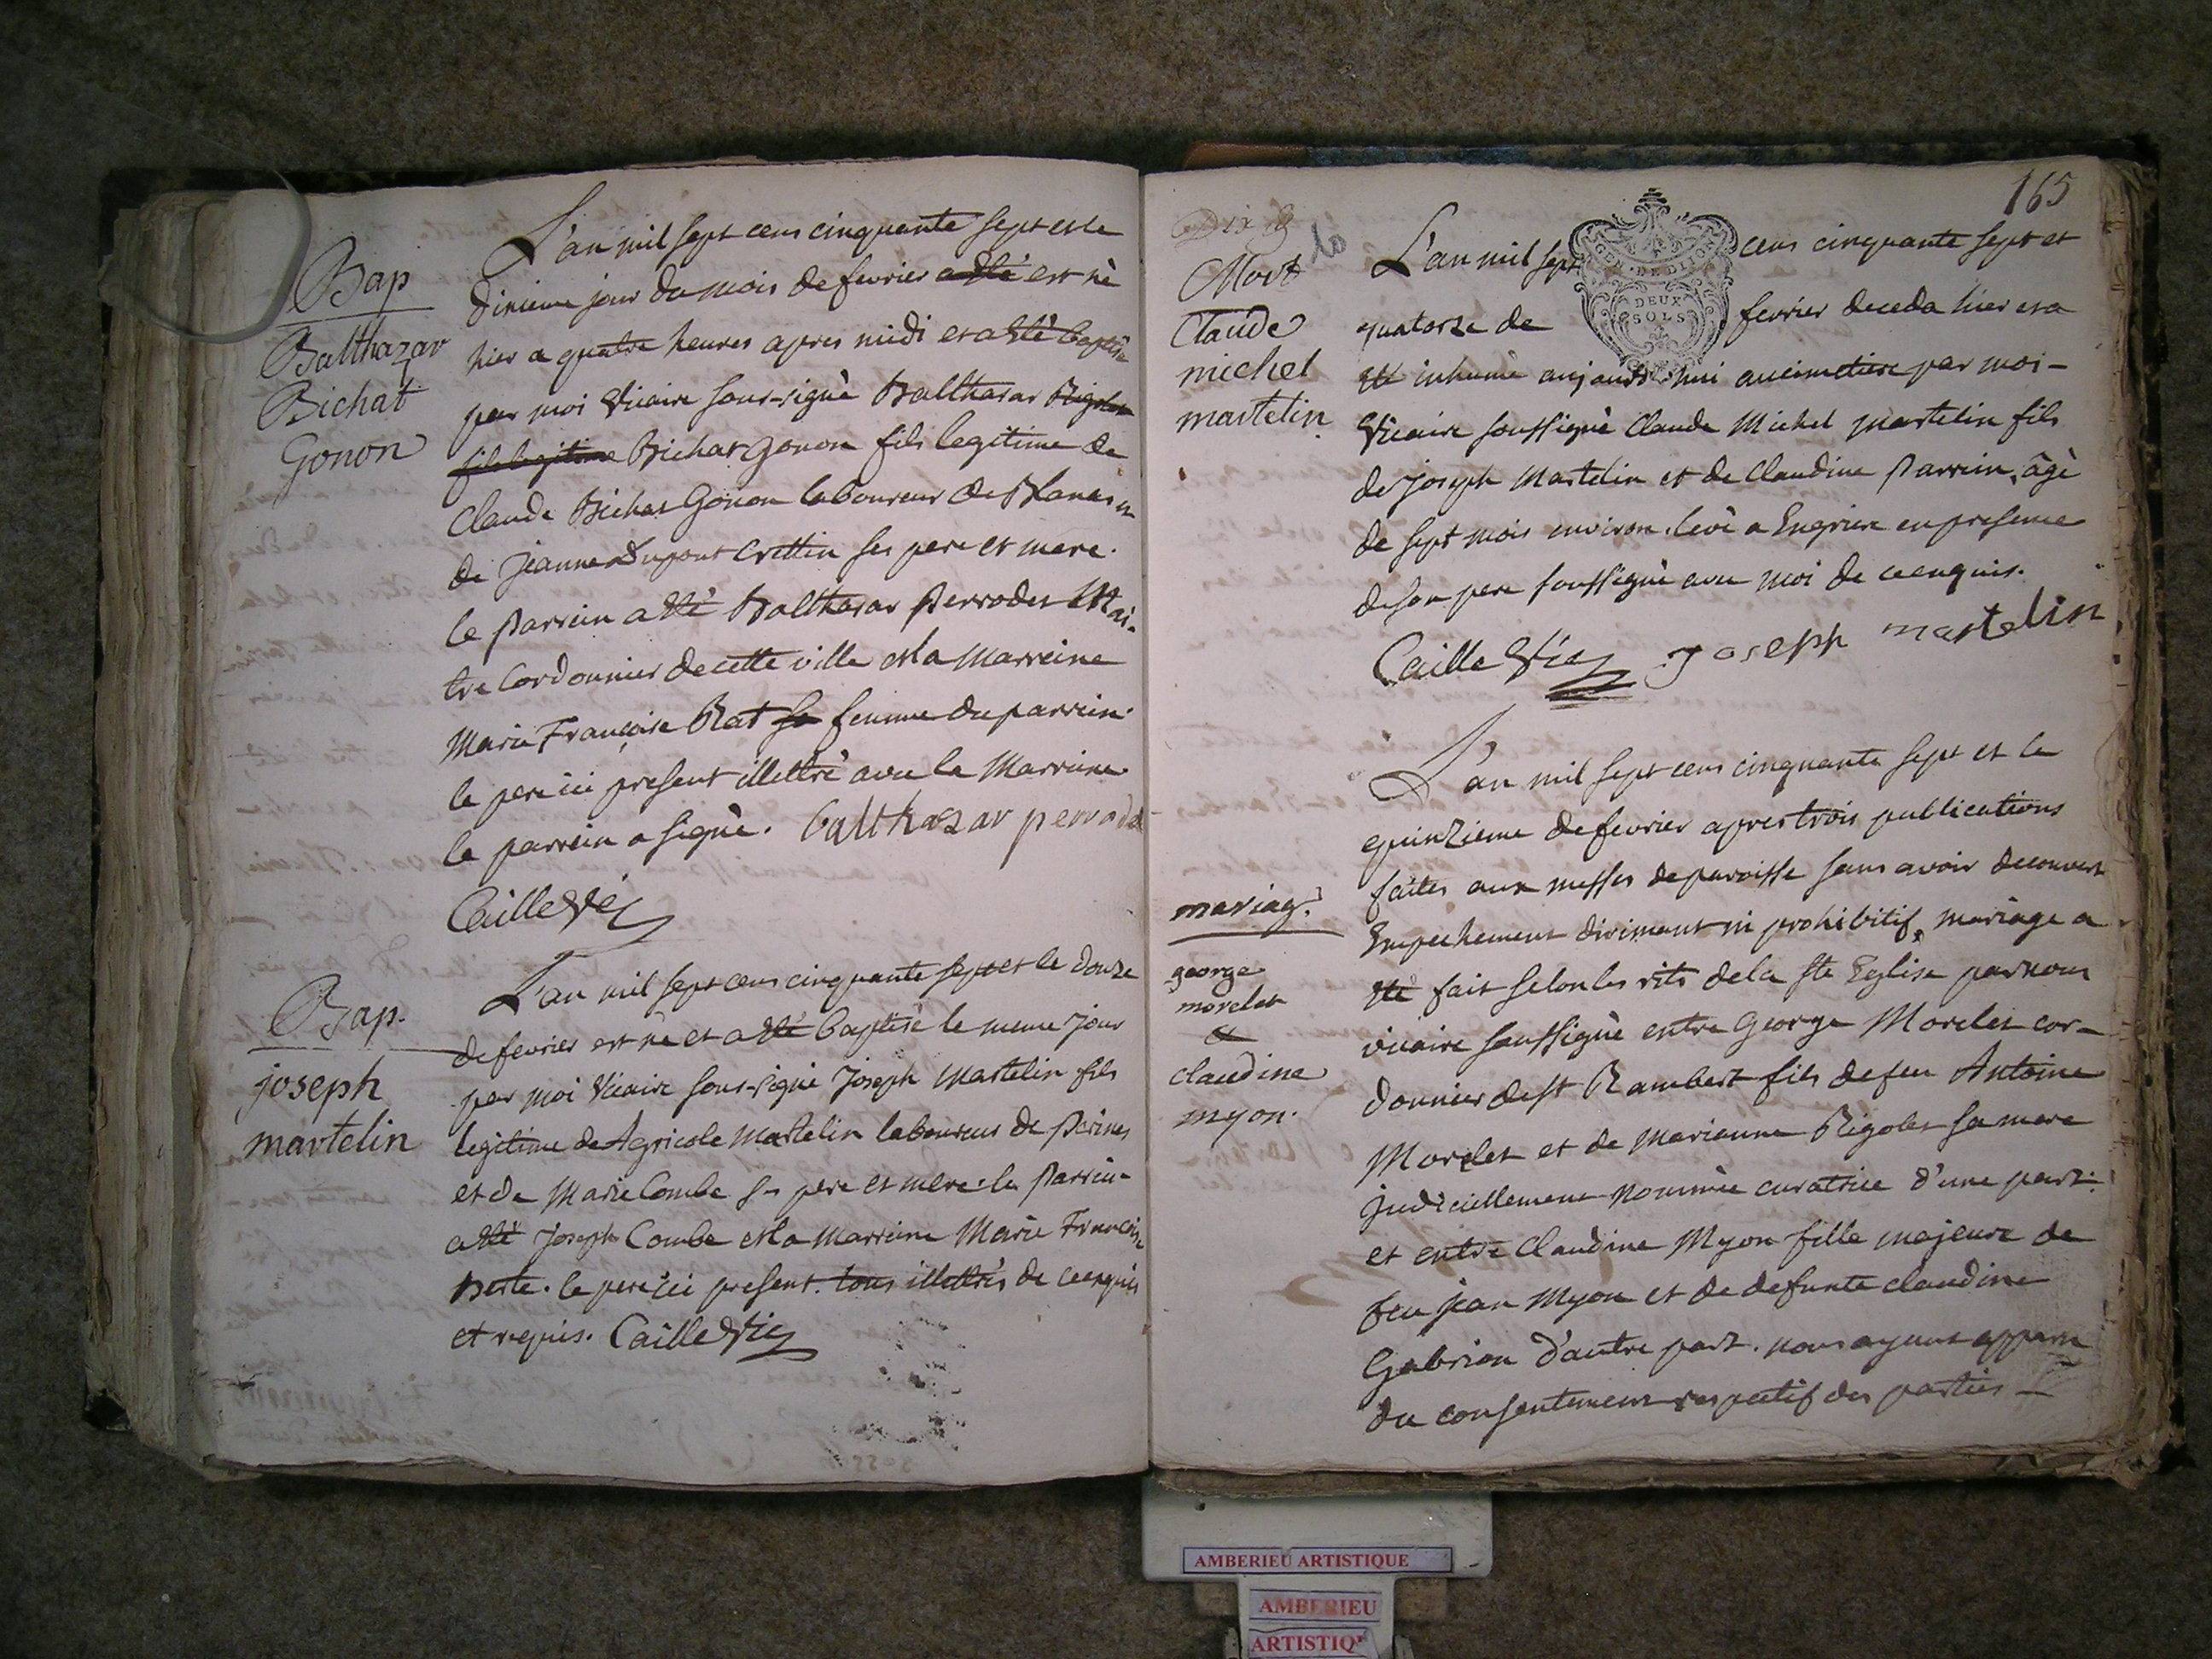 Bap
Balthazar
Bichat
Gonon
L'an mil sept cens cinquante sept et le
dixieme jour du mois de fevrier a été est né
hier a quatre heures apres midi et a été baptisé
par moi Vicaire sous-signè Balthasar Rigolet
fils legitime Bichat Gonon fils legitime de
Claude Bichat Gonon laboureur de Blanas et
de jeanne Dupont Crettin ses pere et mere.
le Parrein a été Balthasar Perrodet Mai-
tre Cordonnier de cette ville et la Marreine
Marie Françoise Rat sa femme du parrein.
le pere ici present illettré avec la Marreine
le parrein a signè. balthazar perrodet
Caille Vic
Bap.
joseph
martelin
L'an mil sept cens cinquante sept et le douze
de fevrier est né et a été baptisé le meme jour
par moi Vicaire sous-signé Joseph Martelin fils
legitime de Agricole Martelin laboureur de Perines
et de Marie Combe ses pere et mere. le Parrein
a été Joseph Combe et la Marreine Marie Françoise
Berte. le pere ici present. tous illettrés de ce enquis
et requis. Caille Vic
165
Mort
Claude
michel
martelin
GEN. DE DIJON
DEUX
SOLS
L'an mil sept cens cinquante sept et
quatorze de fevrier deceda hier et a
été inhumè aujourd'hui au cimetiere par moi
Vicaire soussignè Claude Michel Martelin fils
de Joseph Martelin et de Claudine Parrein, âgè
de sept mois environ. levé a Engrier en presence
de son pere soussignè avec moi de ce enquis.
Caille Vic Joseph martelin
mariag.
george
morelet
&
claudine
myon.
L'an mil sept cens cinquante sept et le
quinzieme de fevrier apres trois publications
faites aux messes de paroisse sans avoir decouvert
Empechement dirimant ni prohibitif, mariage a
été fait selon les rits de la Ste Eglise par nous
vicaire soussignè entre George Morelet cor-
donnier de St Rambert fils de feu Antoine
Morelet et de Marianne Rigolet sa mere
judiciellement nommée curatrice d'une part.
et entre Claudine Myon fille majeure de
feu jean Myon et de defunte claudine
Gabrion d'autre part. nous ayant apparu
du consentement respectif des parties
AMBERIEU ARTISTIQUE
AMBERIEU
ARTISTIQ